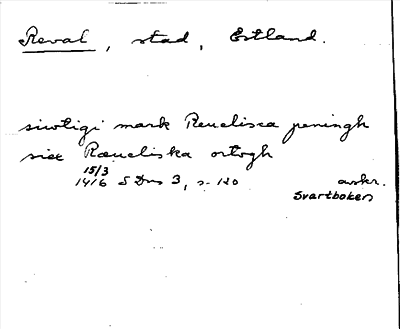 Reval, stad, Estland.
siwtigi mark Reuelisca peningh
siex Ræueliska ortogh
15/3
1416 SDns 3, s. 120 avskr.
Svartboken